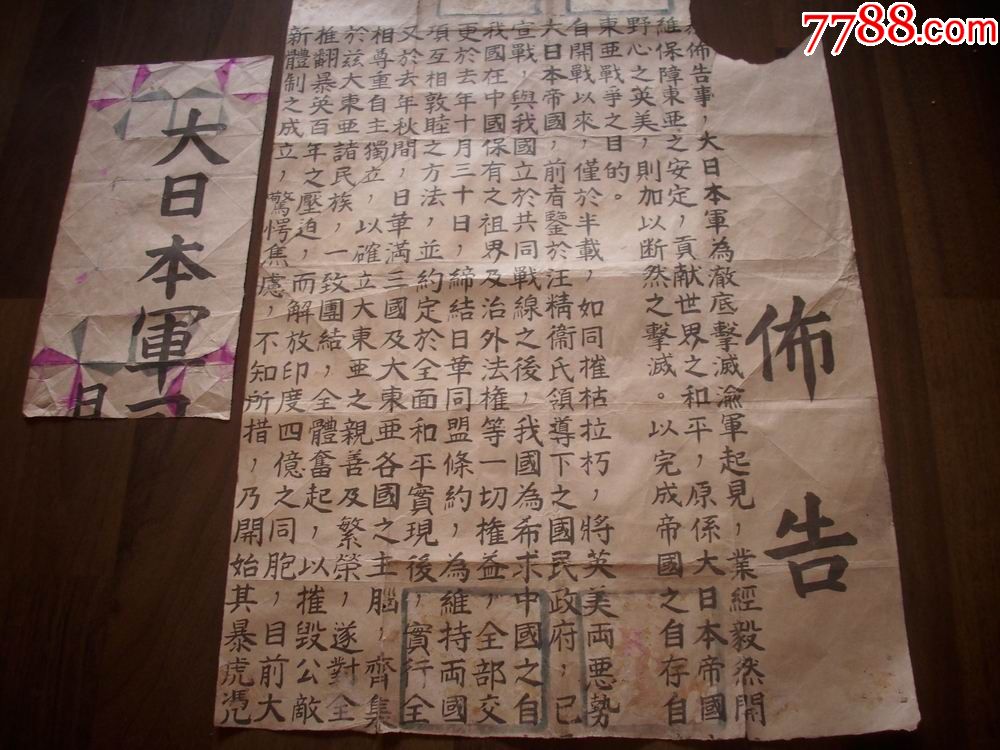 7788.com
佈告
為佈告事，大日本軍為澈底擊滅渝軍起見，業經毅然開
維保障東亞之安定，貢献世界之和平，原係大日本帝國
野心之英美，則加以断然之擊滅。以完成帝國之自存自
東亞戰爭之目的。
自開戰以來，僅於半載，如同摧枯拉朽，將英美両惡勢
大日本帝國，前者鑒於汪精衞氏領導下之國民政府，已
宣戰，與我國立於共同戰線之後，我國為希求中國之自
我國在中國保有之祖界及治外法權等一切權益，全部交
更於去年十月三十日，締結日華同盟條約，為維持両國
項互相敦睦之方法，並約定於全面和平實現後，實行全
又於去年秋間，日華満三國及大東亞各國之主腦，齊集
相尊重自主獨立，以確立大東亞之親善及繁榮，遂對全
於茲大東亞諸民族，一致團結，全體奮起，以摧毀公敵
推翻暴英百年之壓迫，而解放印度四億之同胞，目前大
新體制之成立，驚愕焦慮，不知所措，乃開始其暴虎憑
大日本軍